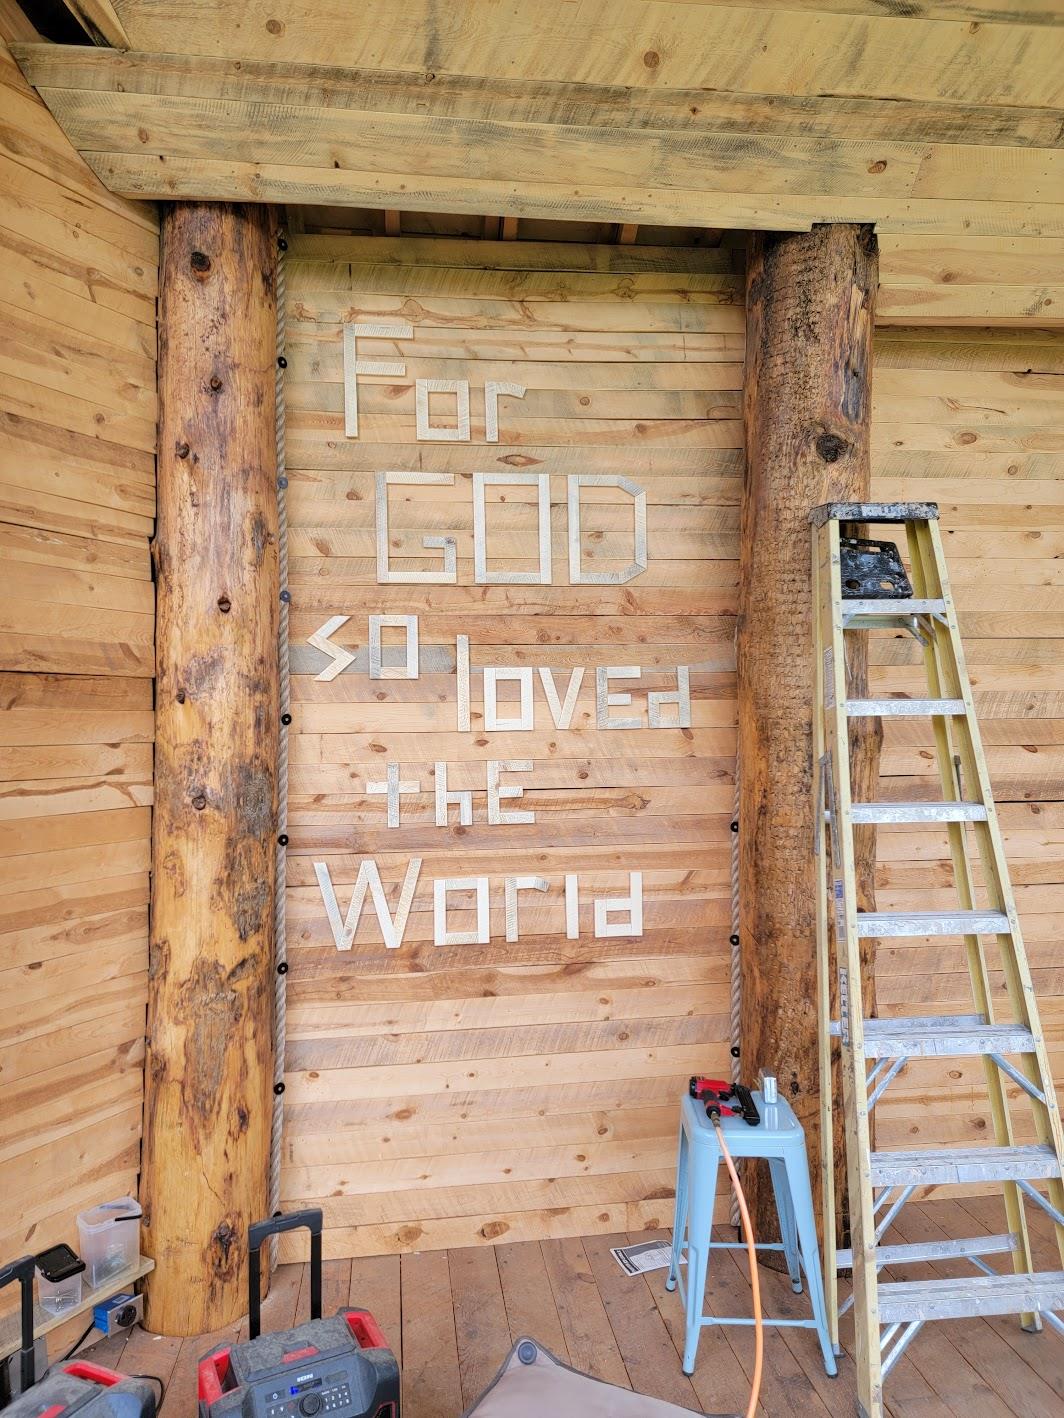 For
GOD
so loved
the
World